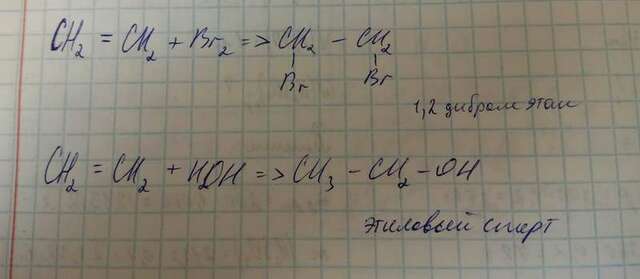 CH₂ = CH₂ + Br₂ => CH₂ - CH₂
Br Br
1,2 дибром этан
CH₂ = CH₂ + HOH => CH₃ - CH₂ - OH
этиловый спирт